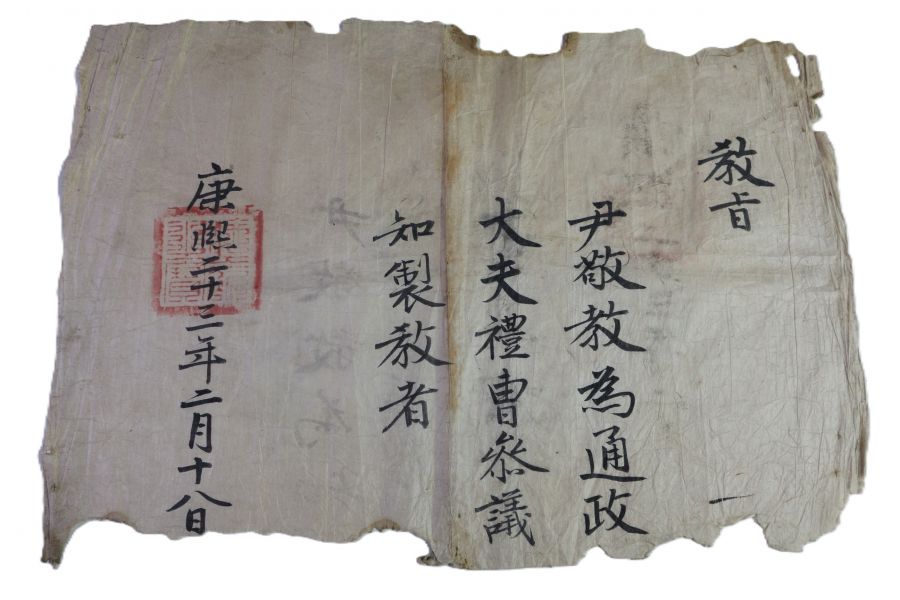 敎旨
尹敬敎為通政
大夫禮曺叅議
知製敎者
康熙二十三年二月十八日